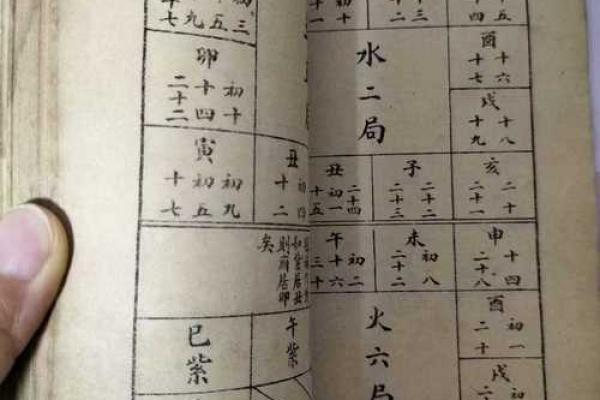 酉
十六
十七
水二局
戌
十八
十九
亥
二十
二十一
子
二十二
二十三
丑
二十四
初一
十五
申
十四
二十八
未
初八
二十二
午
初二
十六
三十
酉
初一
二十
火六局
戌
初三
十五
十七
卯
初十
十四
二十二
寅
初九
初五
十七
丑
初四
十二
如紫居丑
則府居卯
矣
午紫
巳紫